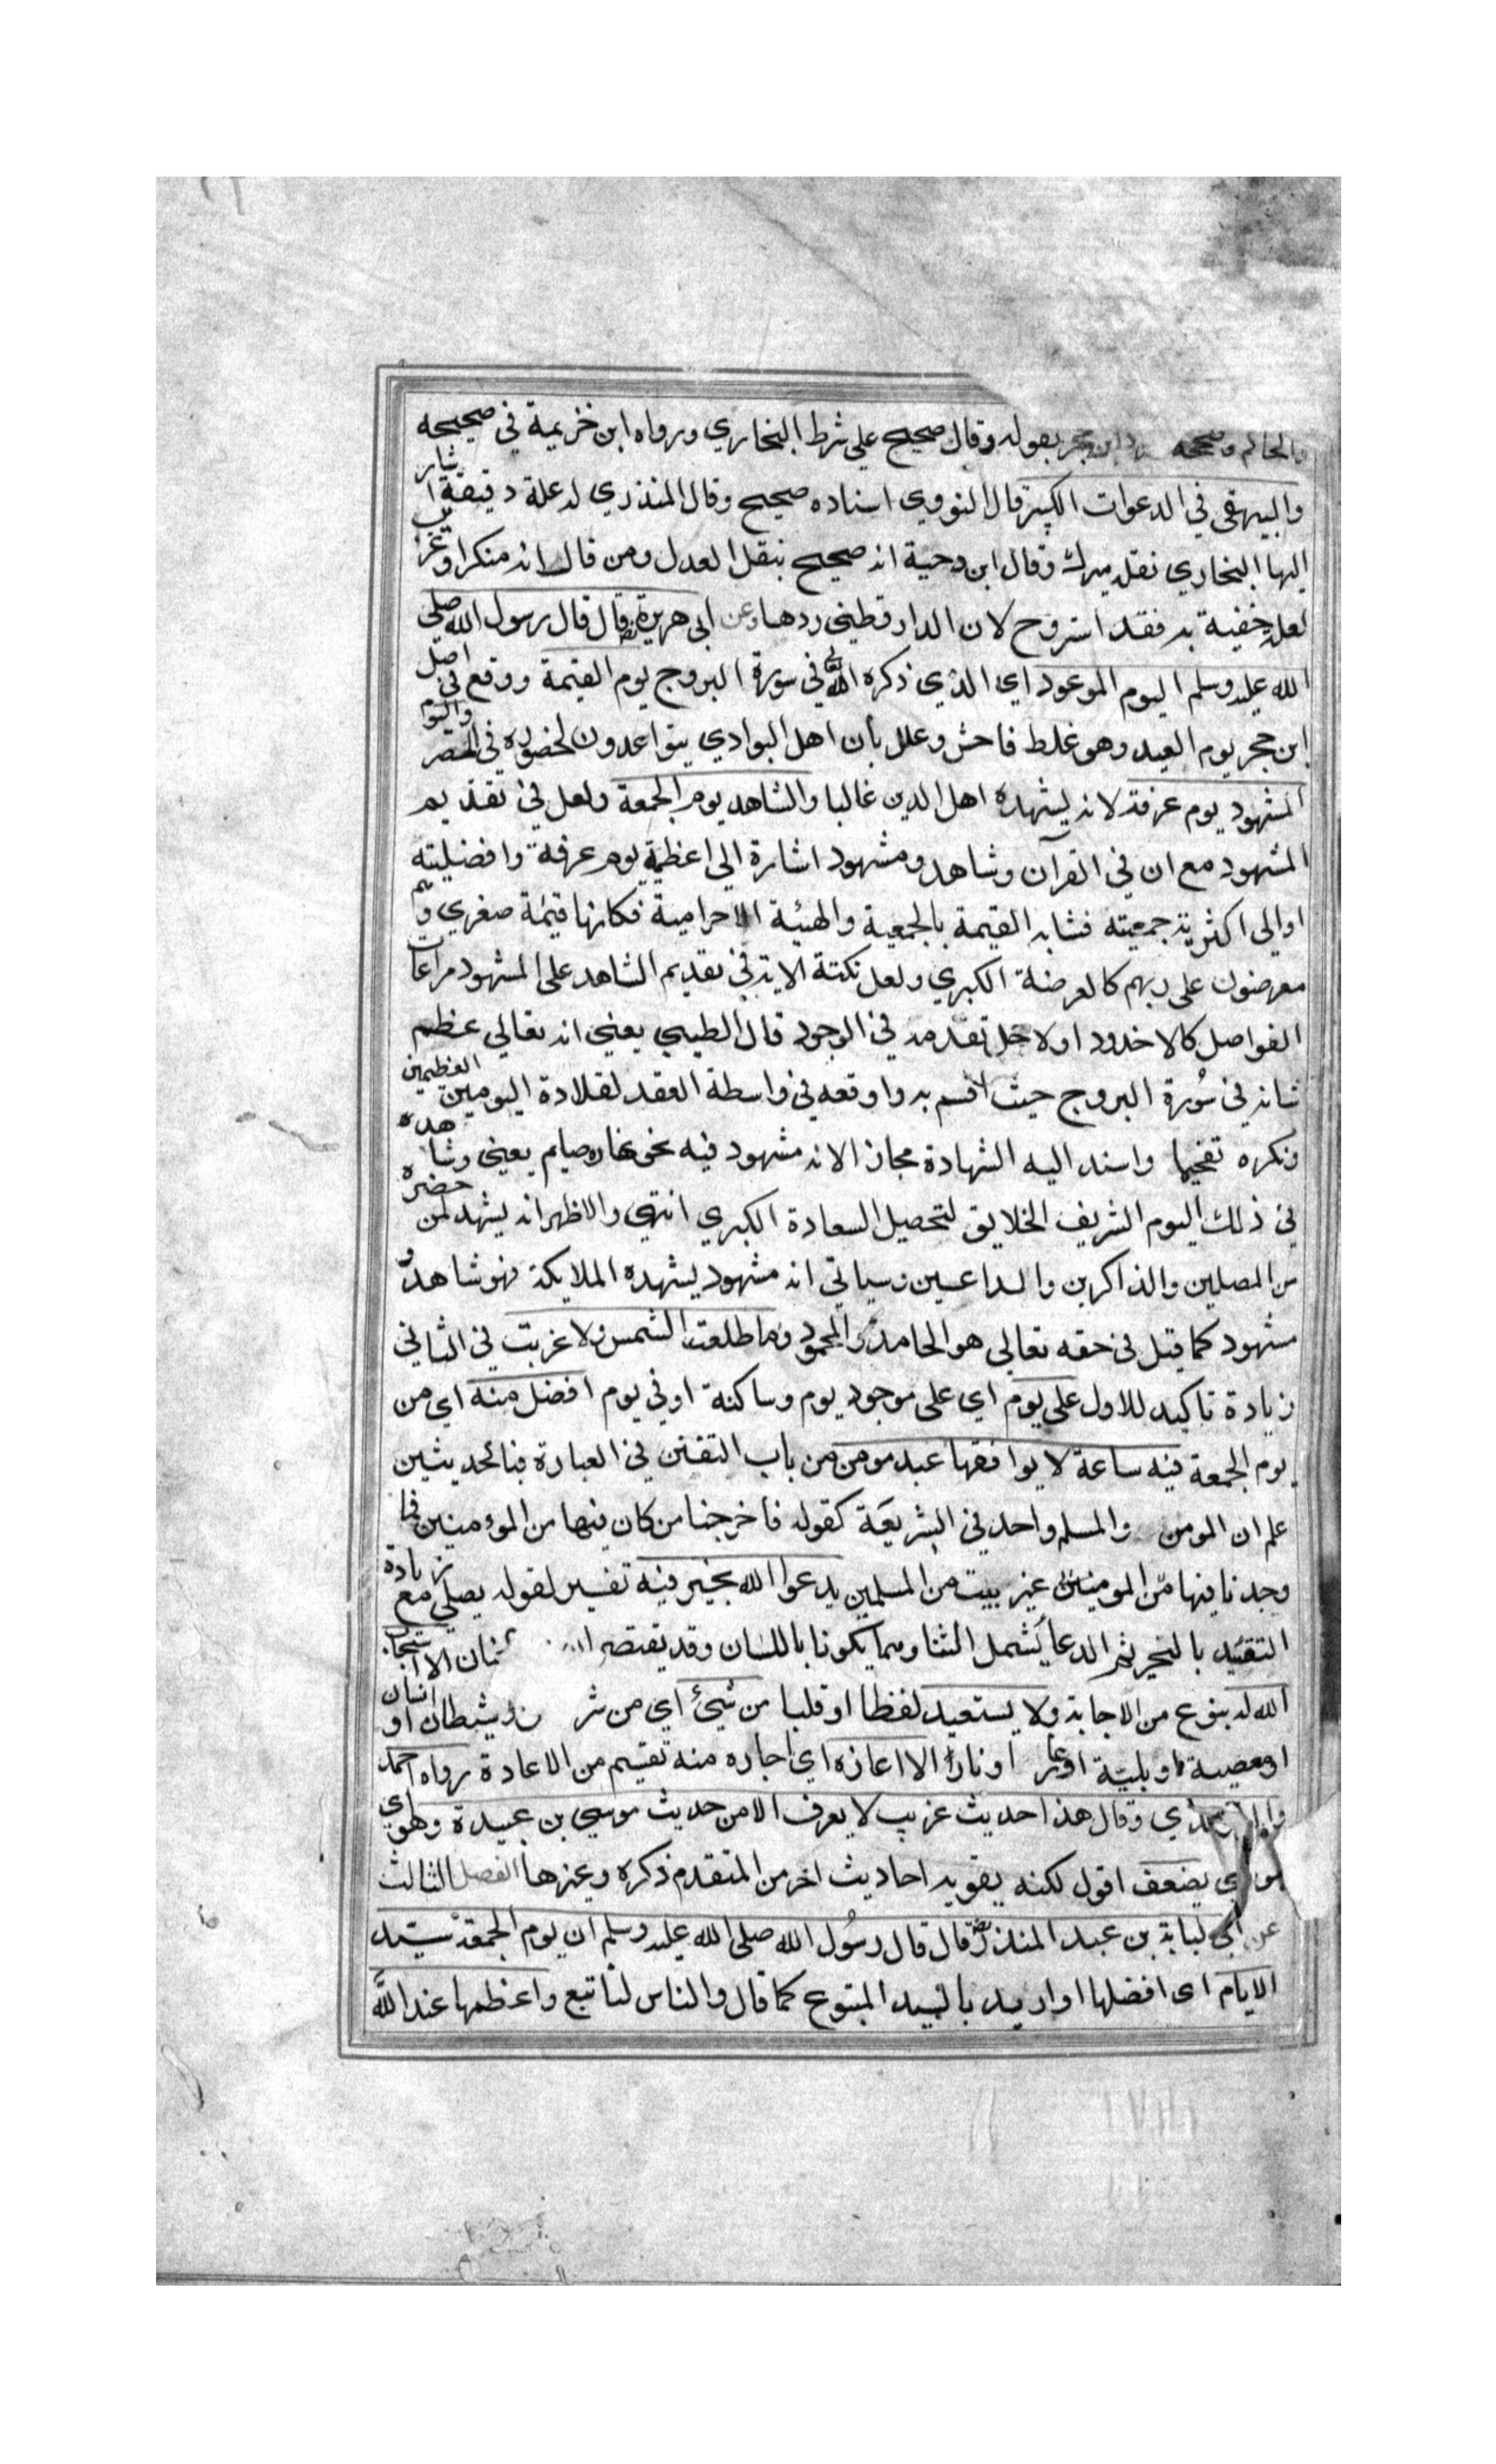 والحاكم وصححه ابن حجر بقوله وقال صحيح علي شرط البخاري ورواه ابن خزيمة في صحيحه
والبيهقي في الدعوات الكبير قال النووي اسناده صحيح وقال المنذري له علة دقيقة اشار
اليها البخاري نقله ميرك وقال ابن دحية انه صحيح بنقل العدل ومن قال انه منكر او غريب
لعلة خفية به فقد استروح لان الدارقطني ردها وعن ابي هريرة قال قال رسول الله صلي
الله عليه وسلم اليوم الموعود اي الذي ذكره الله في سورة البروج يوم القيمة ووقع في اصل
ابن حجر يوم العيد وهو غلط فاحش وعلل بان اهل البوادي يتواعدون لحضوره في المصر واليوم
المشهود يوم عرفة لانه يشهده اهل الدين غالبا والشاهد يوم الجمعة ولعل في تقديم
المشهود مع ان في القرآن وشاهد ومشهود اشارة الي اعظمية يوم عرفة وافضليته
او الي اكثرية جمعيته فشابه القيمة بالجمعية والهيئة الاحرامية فكانها قيمة صغري وهم
معرضون على ربهم كالعرضة الكبري ولعل نكتة الاية في تقديم الشاهد على المشهود مراعات
الفواصل كالاخدود او لاجل تقدمه في الوجود قال الطيبي يعني انه تعالي عظم
شانه في سُورة البروج حيث اقسم به واوقعه في واسطة العقد لقلادة اليومين العظيمين
ونكره تفخيما واسند اليه الشهادة مجازا لانه مشهود فيه نحو نهاره صايم يعني وشاهده
في ذلك اليوم الشريف الخلايق لتحصيل السعادة الكبري انتهي والاظهر انه يشهد لمن حضره
من المصلين والذاكرين والداعين وسياتي انه مشهود يشهده الملايكة فهو شاهد و
مشهود كما قيل في حقه تعالي هو الحامد والمحمود وما طلعت الشمس ولا غربت في الثاني
زيادة تاكيد للاول على يوم اي على موجود يوم وساكنة او في يوم افضل منه اي من
يوم الجمعة فيه ساعة لا يوافقها عبد مومن من باب التفنن في العبارة فبالحديثين
علم ان المومن والمسلم واحد في الشريعَة كقوله فاخرجنا من كان فيها من المؤمنين فما
وجدنا فيها من المومنين غير بيت من المسلمين يدعوا الله بخير فيه تفسير لقوله يصلي مع زيادة
التقييد بالخير ثم الدعا يُشمل الثنا وهما يكونا باللسان وقد يقتصر الا استجاب
الله له بنوع من الاجابة ولا يستعيذ لفظا او قلبا من شيئ اي من شر شيطان او انسان
او معصية او بلية او عار او نار الا اعاذه اي اجاره منه تقسيم من الاعادة رواه احمد
والترمذي وقال هذا حديث غريب لا يعرف الا من حديث موسي بن عبيدة وهو اي
يضعف اقول لكنه يقويه احاديث اخر من المتقدم ذكره وغيرها الفصل الثالث
عن ابي لبابة بن عبد المنذر قال قال رسُول الله صلى الله عليه وسلم ان يوم الجمعة سيد
الايام اي افضلها او اريد بالسيد المتبوع كما قال والناس لنا تبع واعظمها عند الله